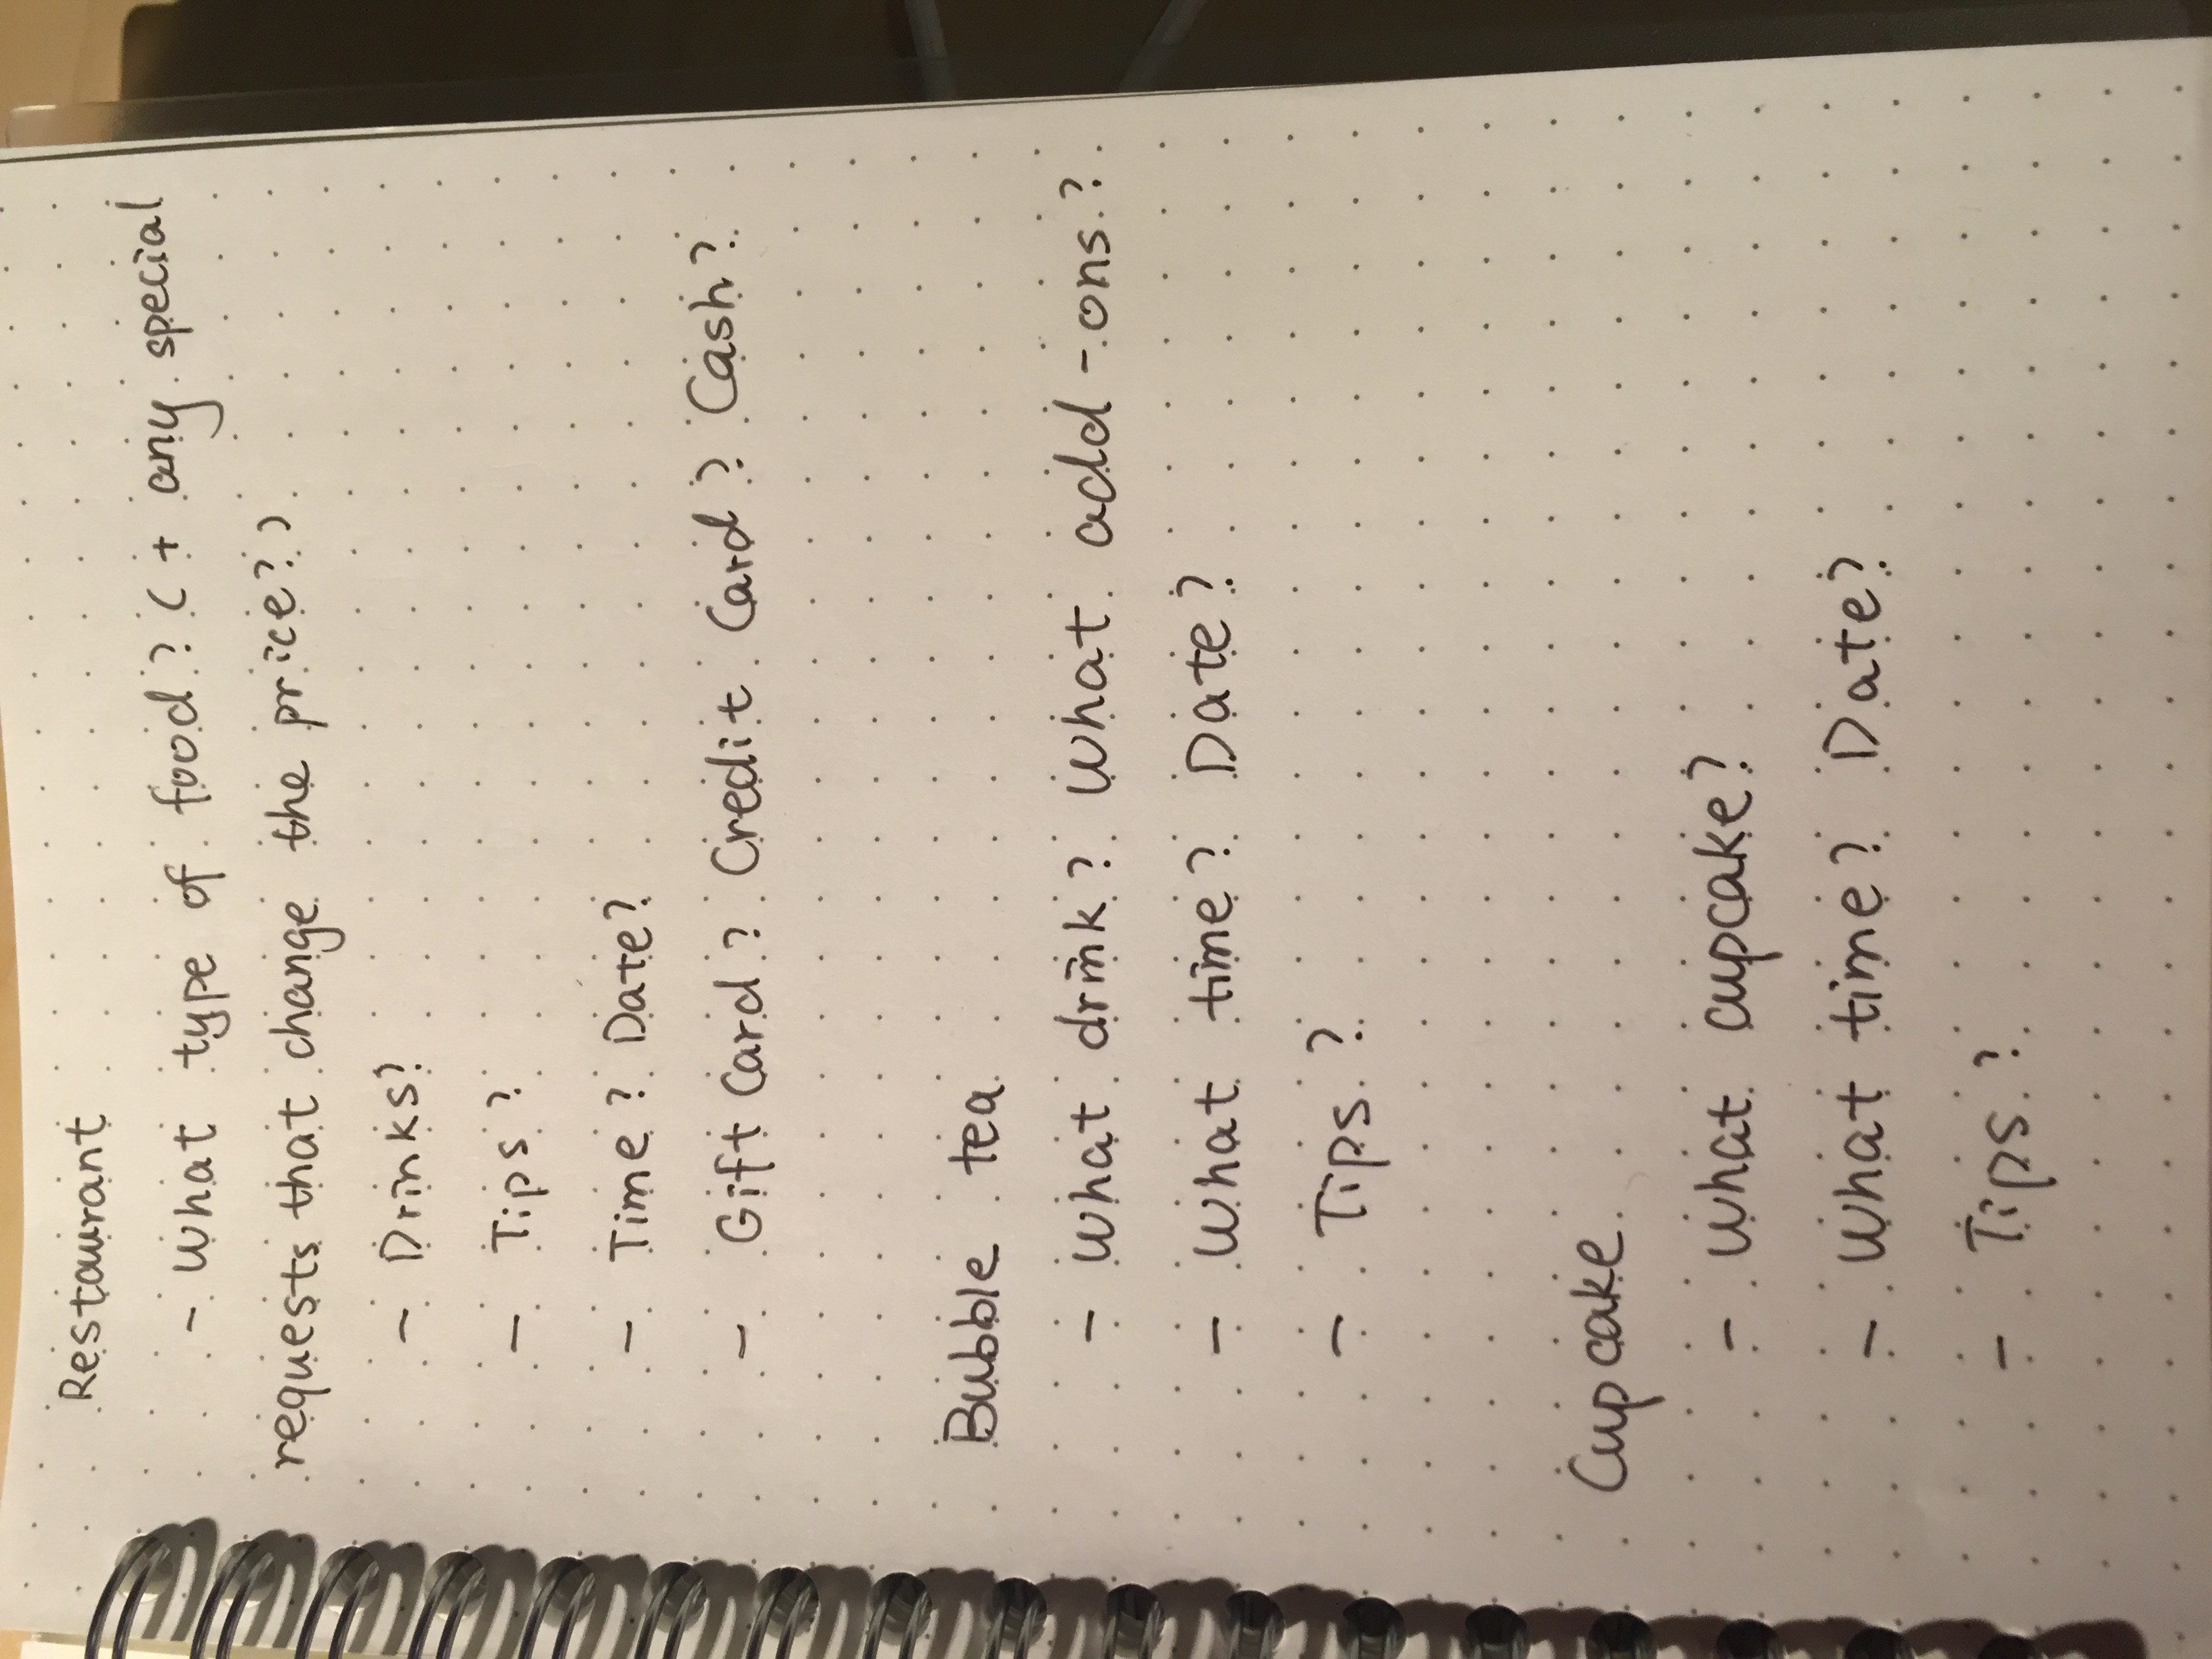 Restaurant
- What type of food? (+ any special
requests that change the price?)
- Drinks?
- Tips?
- Time? Date?
- Gift Card? Credit Card? Cash?
Bubble tea
- What drink? What add-ons?
- What time? Date?
- Tips?
Cupcake
- What cupcake?
- What time? Date?
- Tips?